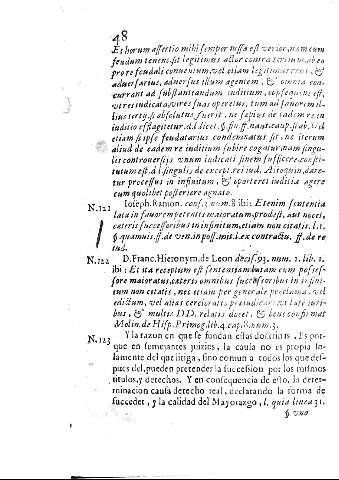 48
Et horum assertio mihi semper visa est verior, nam cum
feudum tenens sit legitimus actor contra tertium, ab eo
pro re feudali conuentum, vel etiam legitimus reus, &
aduersarius, aduersus illum agentem, & omnia con-
currant ad substantiandum iuditium, consequens est,
vt res iudicata, vires suas operetur, tum ad fauorem il-
lius tertij, si absolutus fuerit, ne sæpius de eadem re in
iuditio efflagitetur.
etiam si ipse feudatarius condemnatus sit, ne iterum
aliud de eadem re iuditium subire cogatur, nam singu-
lis controuersijs vnum iudicati finem sufficere consti-
tutum est. d. l. singulis de except. rei iud. Alioquin, dare-
tur processus in infinitum, & oporteret iuditia agere
cum quolibet posteriore agnato.
N.121 Ioseph. Ramon. cons. num. 8 ibi: Etenim sententia
lata in fauorem petentis maioratum, prodest, aut nocet,
cæteris successoribus in infinitum, etiam non citatis. l. 1.
§. quamuis. ff. de ven. in poss. mit. l. ex contractu. ff. de re
iud.
N.122 D. Franc. Hieronym. de Leon decis. 93. num. 1. lib. 1.
ibi: Et ita receptum est sententiam latam cum posses-
sore maioratus, cæteris omnibus successoribus in infini-
tum non citatis, nec etiam per generale proclama, vel
edictum, vel alias cercioratis præiudicare vt late iuri-
bus, & multis DD. relatis docet, & bene confirmat
Molin. de Hisp. Primog. lib. 4. cap. 8. num. 3.
N.123 Y la razon en que se fundan estas doctrinas, Es por-
que en semejantes juizios, la causa no es propia so-
lamente del que litiga, sino comun a todos los que des-
pues del, pueden pretender la succession por los mismos
titulos, y derechos. Y en consequencia de esto, la deter-
minacion causa derecho real, declarando la forma de
succeder, y la calidad del Mayorazgo, l. quia linea 31.
§. vno